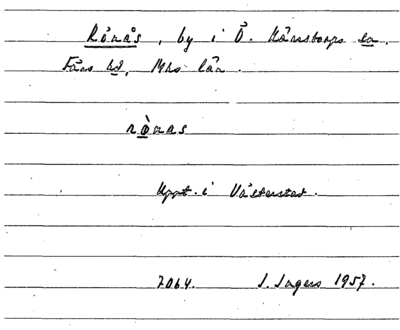 Rönås, by i Ö. Kärrstorps sn.
Färs hd, Mhs län.
rò̱nas
Uppt. i Västerstad.
2064. I. Ingers 1957.